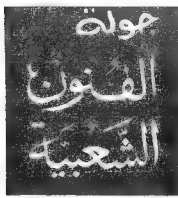 جولة
الفنون
الشَّعبيَة